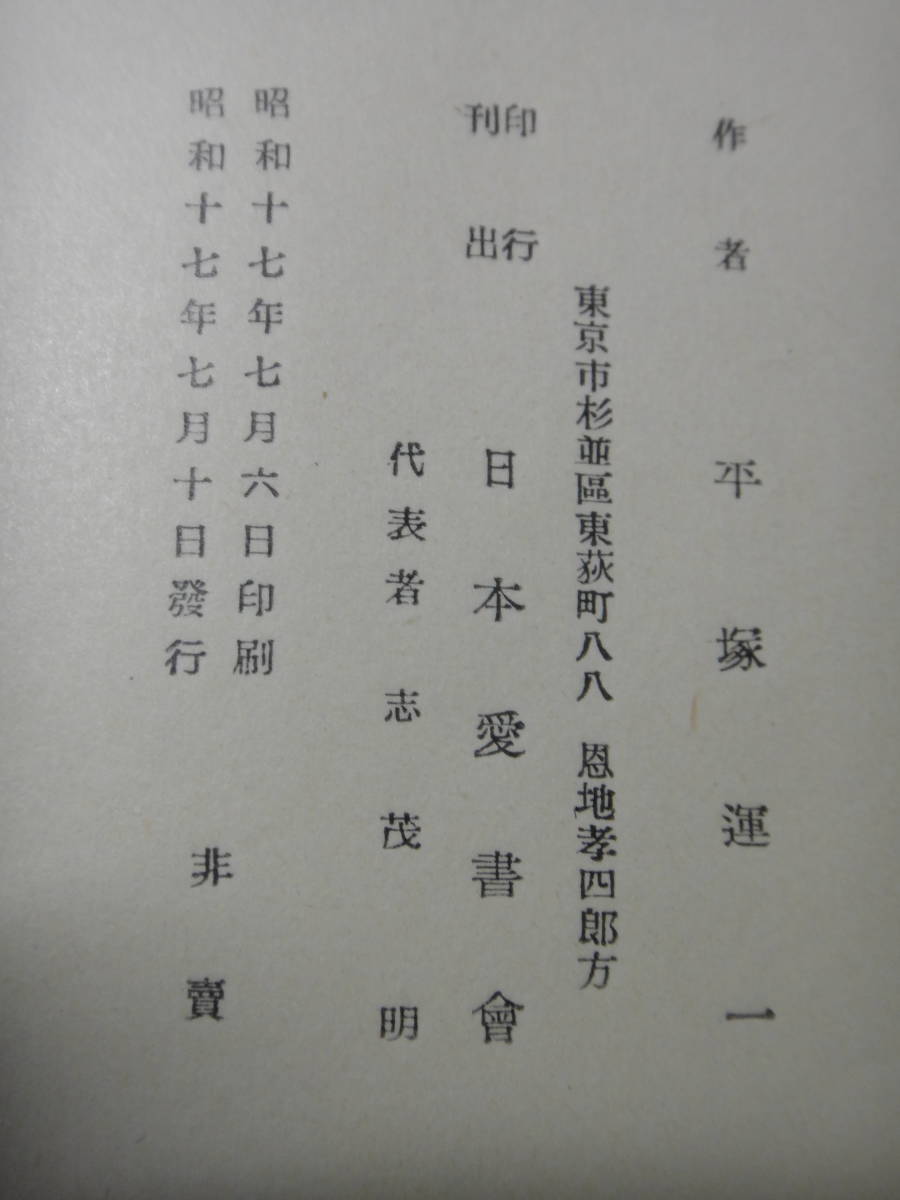 作者 平塚運一
東京市杉並區東荻町八八 恩地孝四郎方
印行
刊出
日本愛書會
代表者 志茂明
昭和十七年七月六日印刷
昭和十七年七月十日發行
非賣